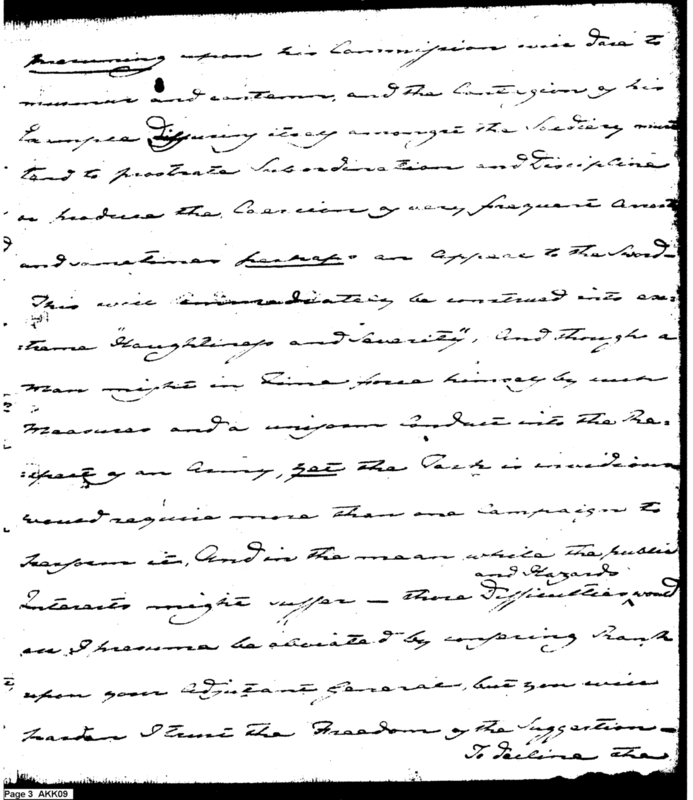 presuming upon his Commission will dare to
murmur and contemn, and the Contagion of his
Example diffusing itself amongst the Soldiery must
tend to prostrate Subordination and Discipline
or produce the Coercion of very frequent Arrests
and sometimes perhaps an Appeal to the Sword—
This will immediately be construed into ex:
:treme "Haughtiness and Severity", And though a
Man might in Time force himself by such
Measures and a uniform Conduct into the Re:
:spect of an Army, yet the Task is invidious
would require more than one Campaign to
perform it, And in the mean while the public
and Hazards
Interests might suffer — those Difficulties ^ would
as I presume be obviated by conferring Rank
upon your Adjutant General, but you will
pardon I trust the Freedom of the Suggestion—
To decline the
Page 3 AKK09